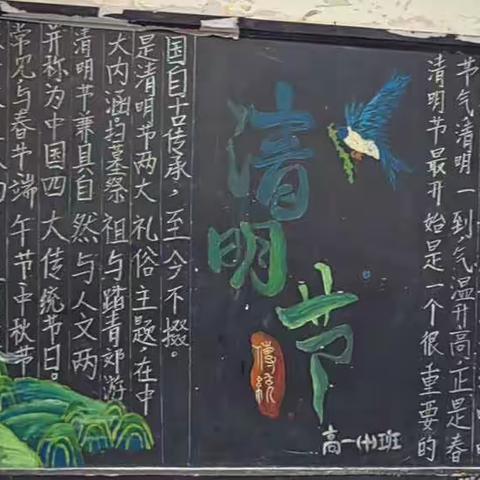 常见与春节端午节中秋节
并称为中国四大传统节日。
清明节兼具自然与人文两
大内涵,扫墓祭祖与踏青郊游
是清明节两大礼俗主题,在中
国自古传承,至今不掇。
清明节
傳統
高一(十)班
清明节最开始是一个很重要的
节气清明一到,气温升高,正是春